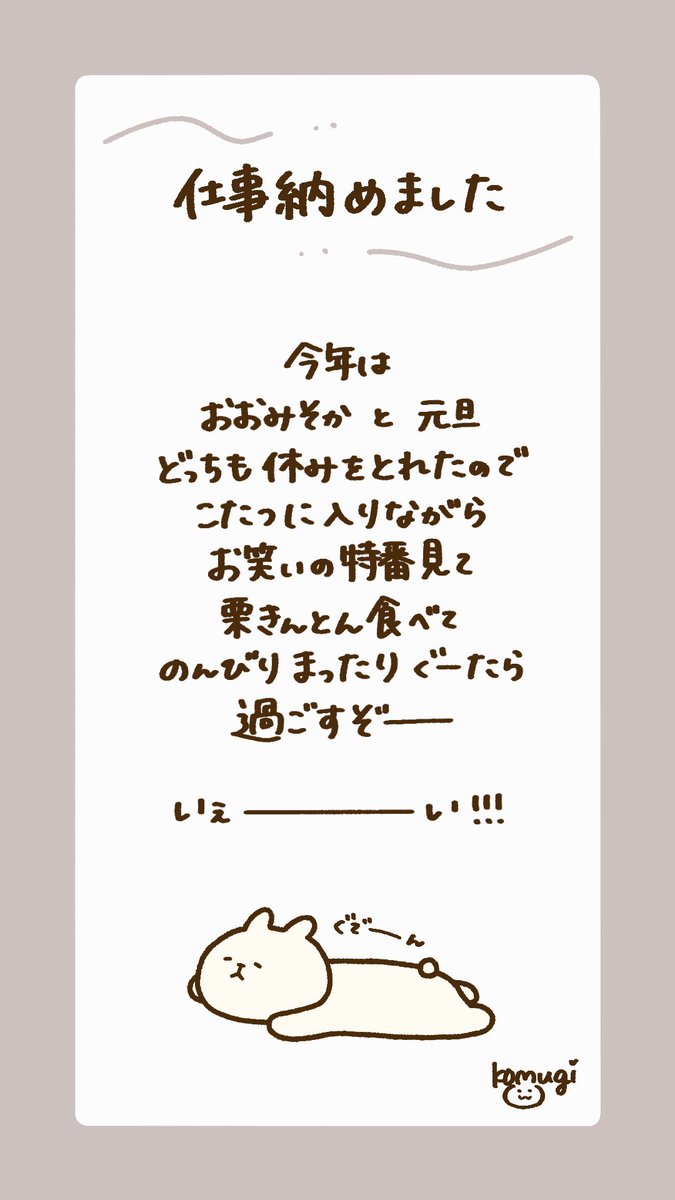 仕事納めました
今年は
おおみそか と 元旦
どっちも休みをとれたので
こたつに入りながら
お笑いの特番見て
栗きんとん食べて
のんびりまったりぐーたら
過ごすぞーー
いぇーーーーい!!!
ぐでーん
komugi